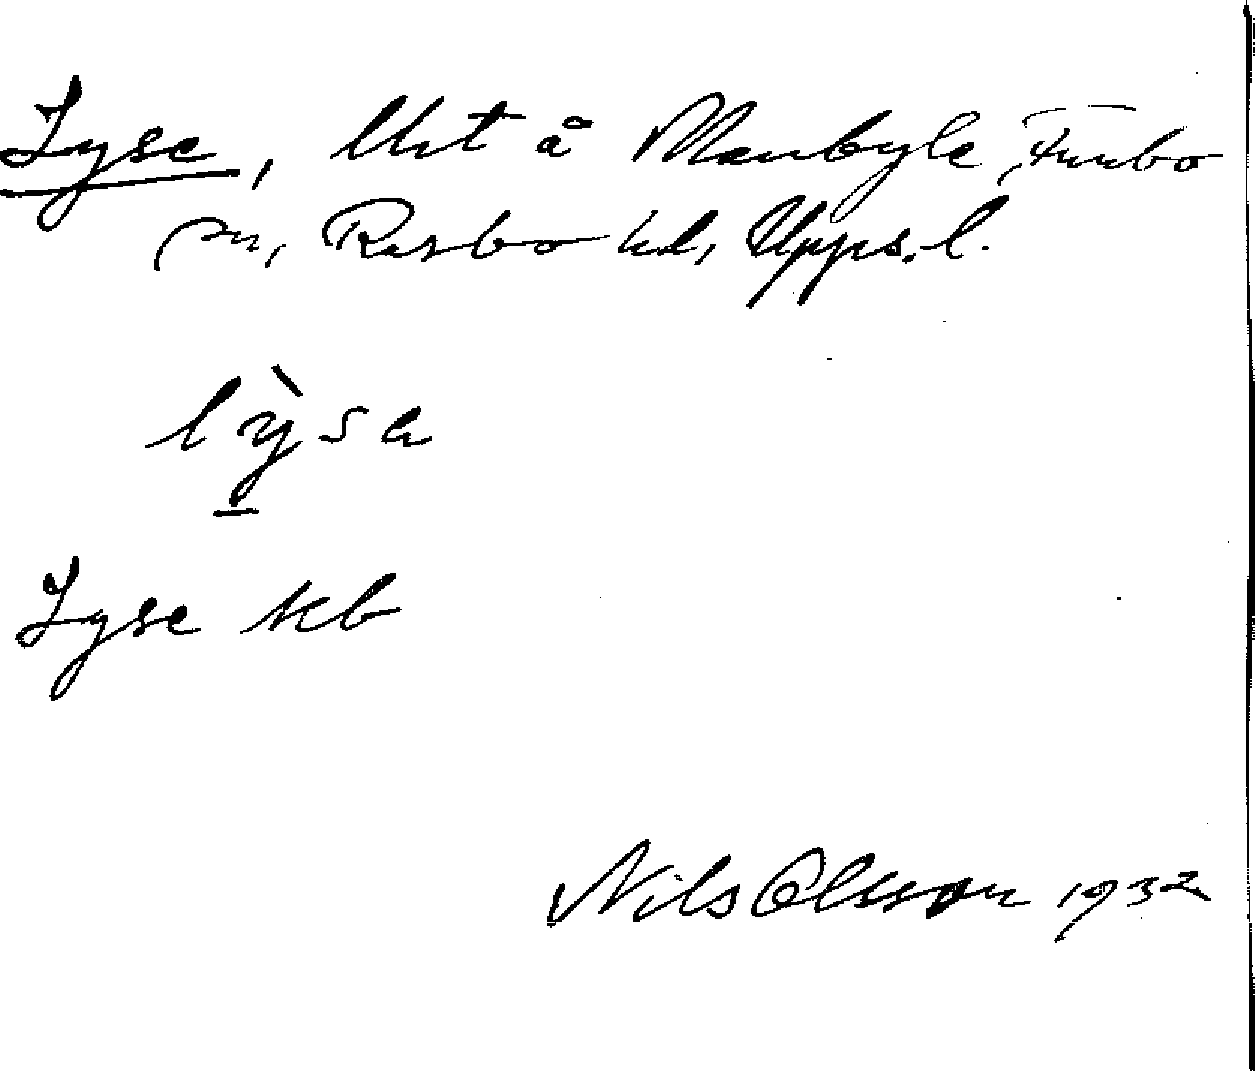 Lyse, lht å Marbyle, Funbo
sn, Rasbo hd, Upps. l.
lỳsa
Lyse kb
Nils Olsson 1932